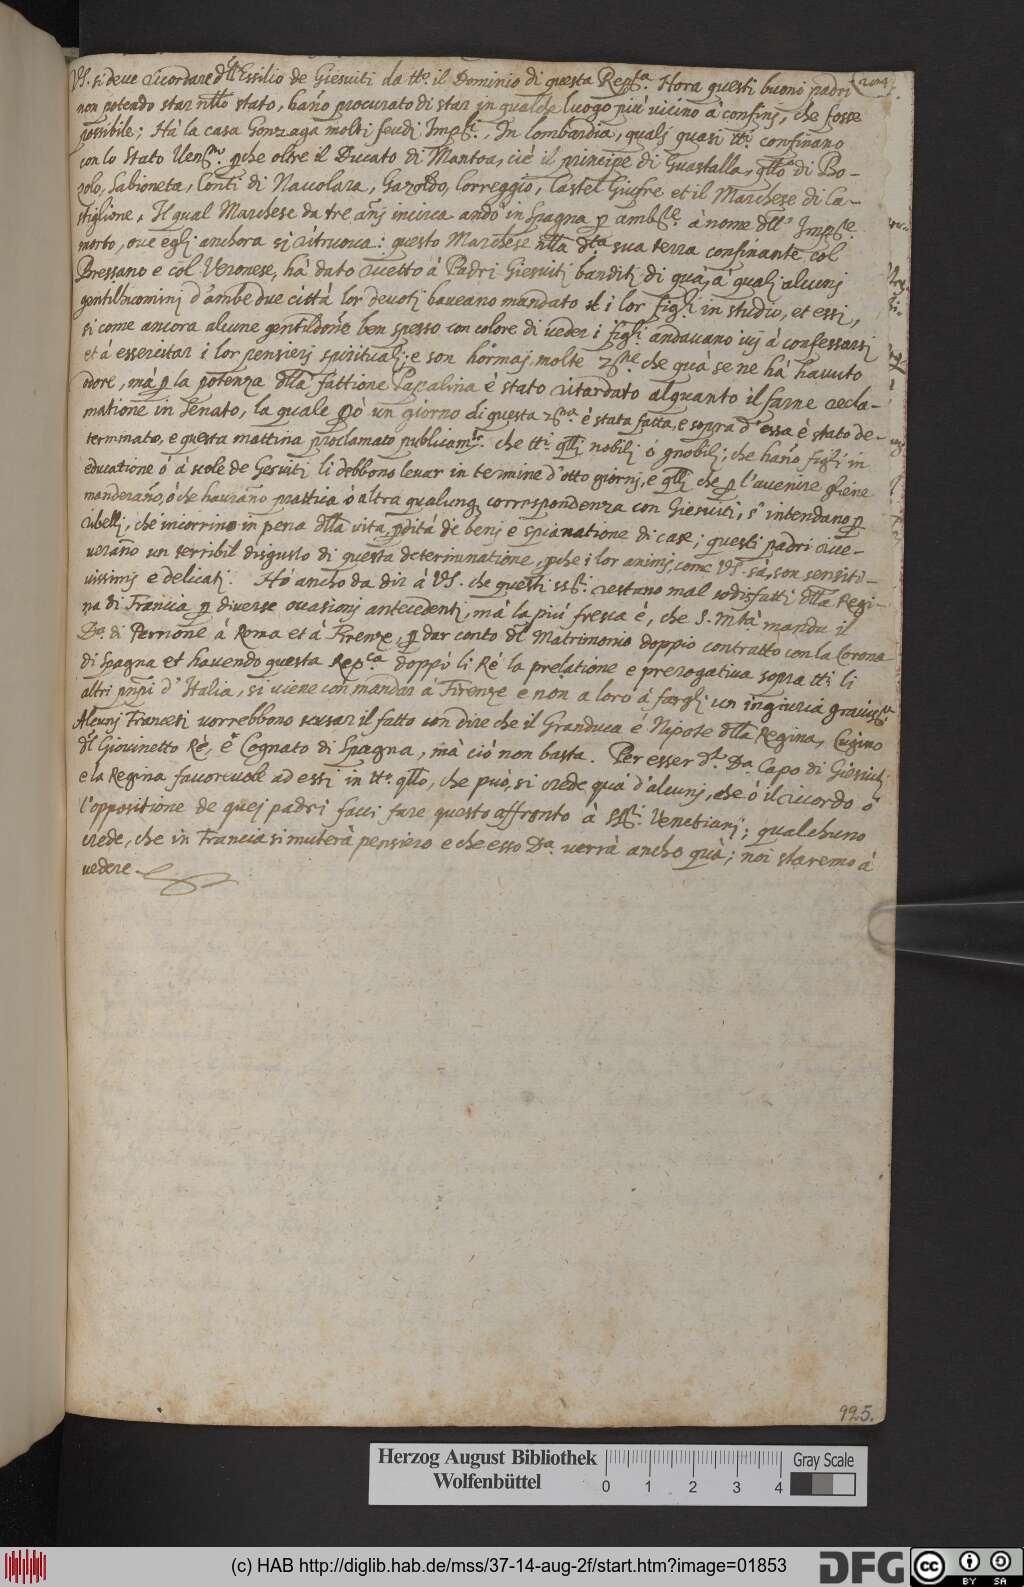 VS. si deue ricordare dll'Essilio de Giesuiti da tto. il Dominio di questa Repca. Hora questi buoni padri
204
non potendo star nllo stato, hano procurato di star in qualche luogo più uicino à confinj, che fosse
possibile; Hà la casa Gonzaga molti feudi Impli. In lombardia, quali quasi tti. confinano
con lo Stato Ueno. pche oltre il Ducato di Mantoa, ciè il principe di Guastalla, qllo di Bo-
zolo, Sabioneta, Conti di Nauolara, Gazoldo, Correggio, Castel Giufre et il Marchese di Ca-
stiglione, Il qual Marchese da tre anj incirca andò in Spagna p ambre. à nome dll' Impre.
morto, oue egli anchora si ritruoua: questo Marchese nlla dta sua terra confinante col
Bressano e col Veronese, hà dato ricetto à Padri Giesuiti banditj di quà, à qualj alcunj
gentilhuominj d'ambe due città lor deuotj haueano mandato i lor figli in studio, et essi,
si come ancora alcune gentildone ben spesso con colore di ueder i figli andauano iuj à confessarsi
et à essercitar i lor pensierj spiritualj; e son hormaj molte che quà se ne hà hauuto
odore, mà p la potenza dlla fattione Papalina è stato ritardato alquanto il farne recla-
matione in Senato, la quale pò un giorno di questa è stata fatta, e sopra d'essa è stato de-
terminato, e questa mattina proclamato publicamte. che tti. qlli nobilj ò gnobilj, che hano figli in
educatione ò à scole de Gesuiti li debbono leuar in termine d'otto giornj, e qlli che p l'auenire gliene
manderano, ò che haurano prattica ò altra qualunq corrispondenza con Giesuiti, s'intendano p
ribelli, che incorrino in pena dlla vita, pdità de benj e spianatione di case; questi padri rice-
uerano un terribil disgusto di questa determinatione, pche i lor animj, come VS. sà, son sensiti-
uissimj e delicatj. Hò ancho da dir à VS. che questi ssri. restano mal sodisfatti dlla Regi-
na di Francia p diuerse occasionj antecedenti, mà la più fresca è, che S. Mtà manda il
Da. di Perrone à Roma et à Firenze, p dar conto dl Matrimonio doppio contratto con la Corona
di Spagna et hauendo questa Repca doppò li Rè la prelatione e prerogatiua sopra tti li
altri pnpi d'Italia, si uiene con mandar à Firenze e non a loro à fargli un ingiuria grauissa.
Alcunj Francesi uorrebbono scusar il fatto con dire che il Granduca è Nipote dlla Regina, Cugino
dl Giouinetto Rè, e Cognato di Spagna, mà ciò non basta. Per esser do. Da. Capo di Giesuiti
e la Regina fauoreuole ad essi in tto. qllo, che può, si crede quà d'alcunj, che ò il ricordo ò
l'oppositione de quej padri facci fare questo affronto à SSri. Venetianj; qualchuno
crede, che in Francia si muterà pensiero e che esso Da. uerrà ancho quà; noi staremo à
uedere
925.
Herzog August Bibliothek
Wolfenbüttel
0 1 2 3 4
Gray Scale
(c) HAB http://diglib.hab.de/mss/37-14-aug-2f/start.htm?image=01853
DFG
cc BY SA